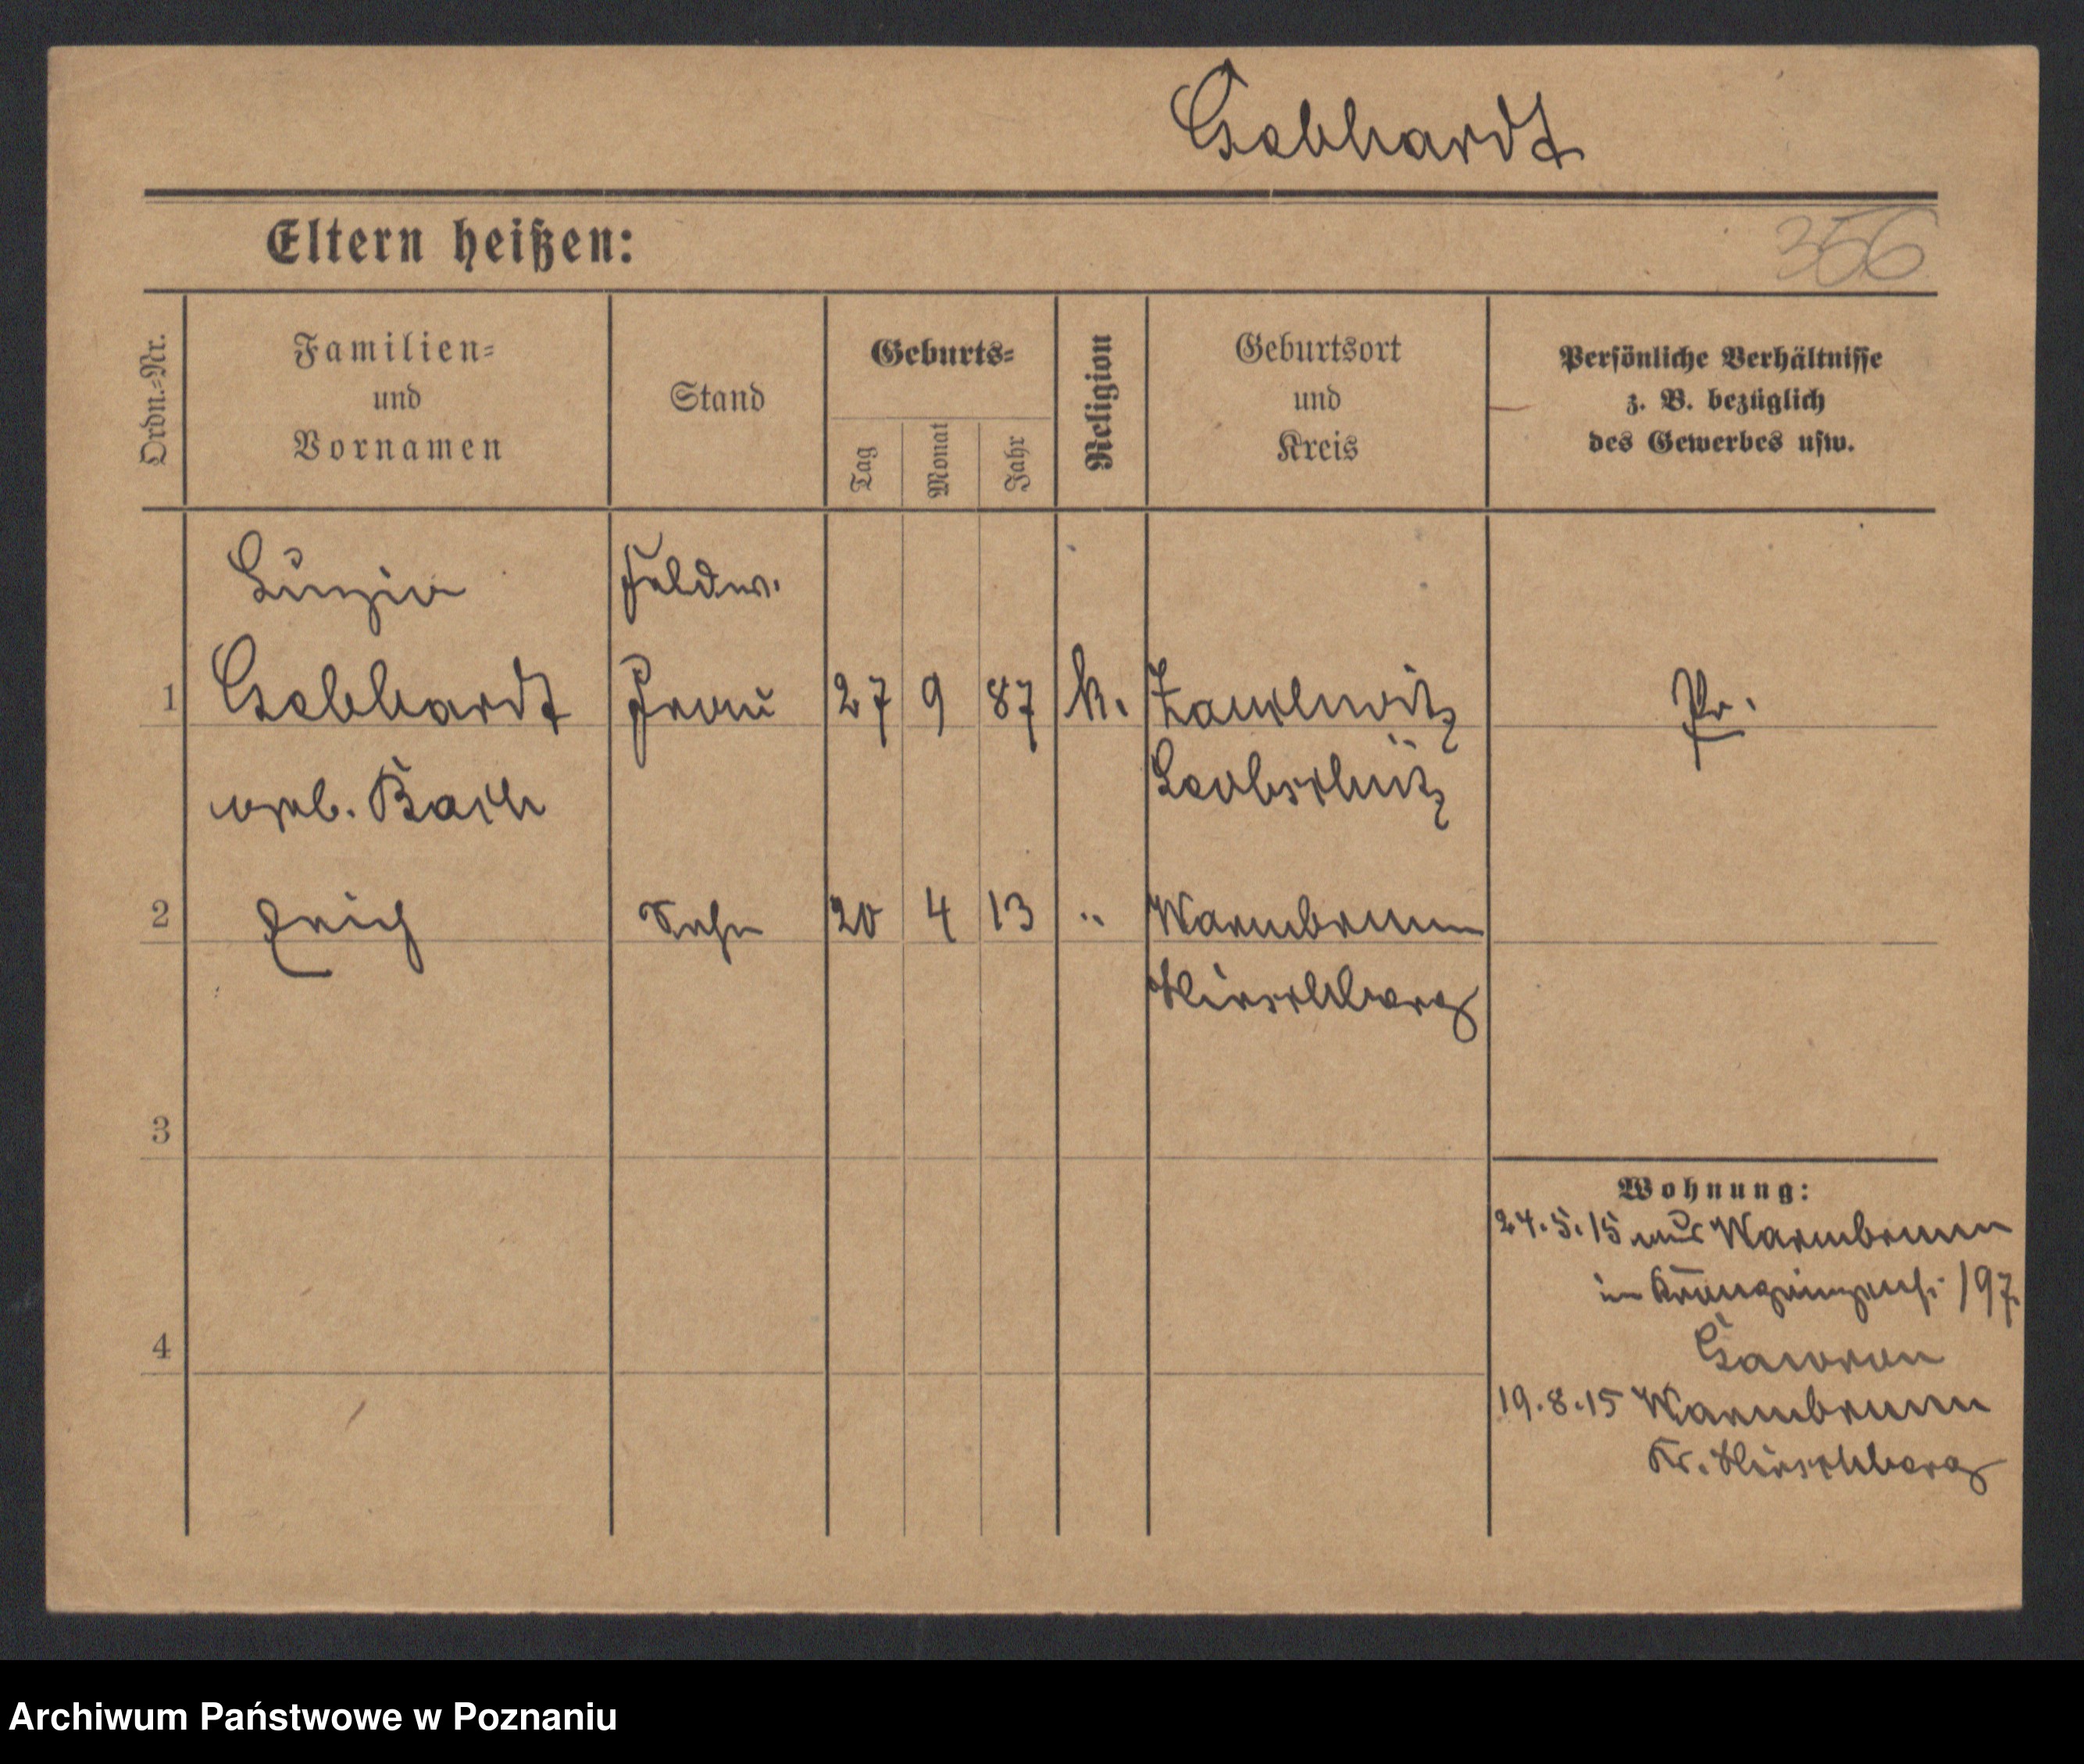 Gebhardt
Eltern heißen:
356
Ordn.-Nr.
Familien-
und
Vornamen
Stand
Geburts-
Tag
Monat
Jahr
Religion
Geburtsort
und
Kreis
Persönliche Verhältnisse
z. B. bezüglich
des Gewerbes usw.
Luzie Feldw.
1 Gebhardt Frau 27 9 87 k. Zauchwitz Pr.
geb. Bach Leobschütz
2 Erich Sohn 20 4 13 " Warmbrunn
Hirschberg
3
4
Wohnung:
24.5.15 aus Warmbrunn
197
Gawron
19.8.15 Warmbrunn
Kr. Hirschberg
Archiwum Państwowe w Poznaniu